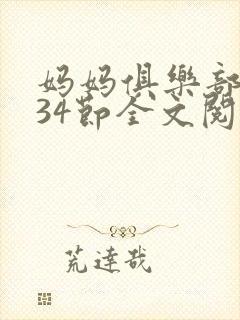 妈妈俱樂部
34節全文閱
荒達哉